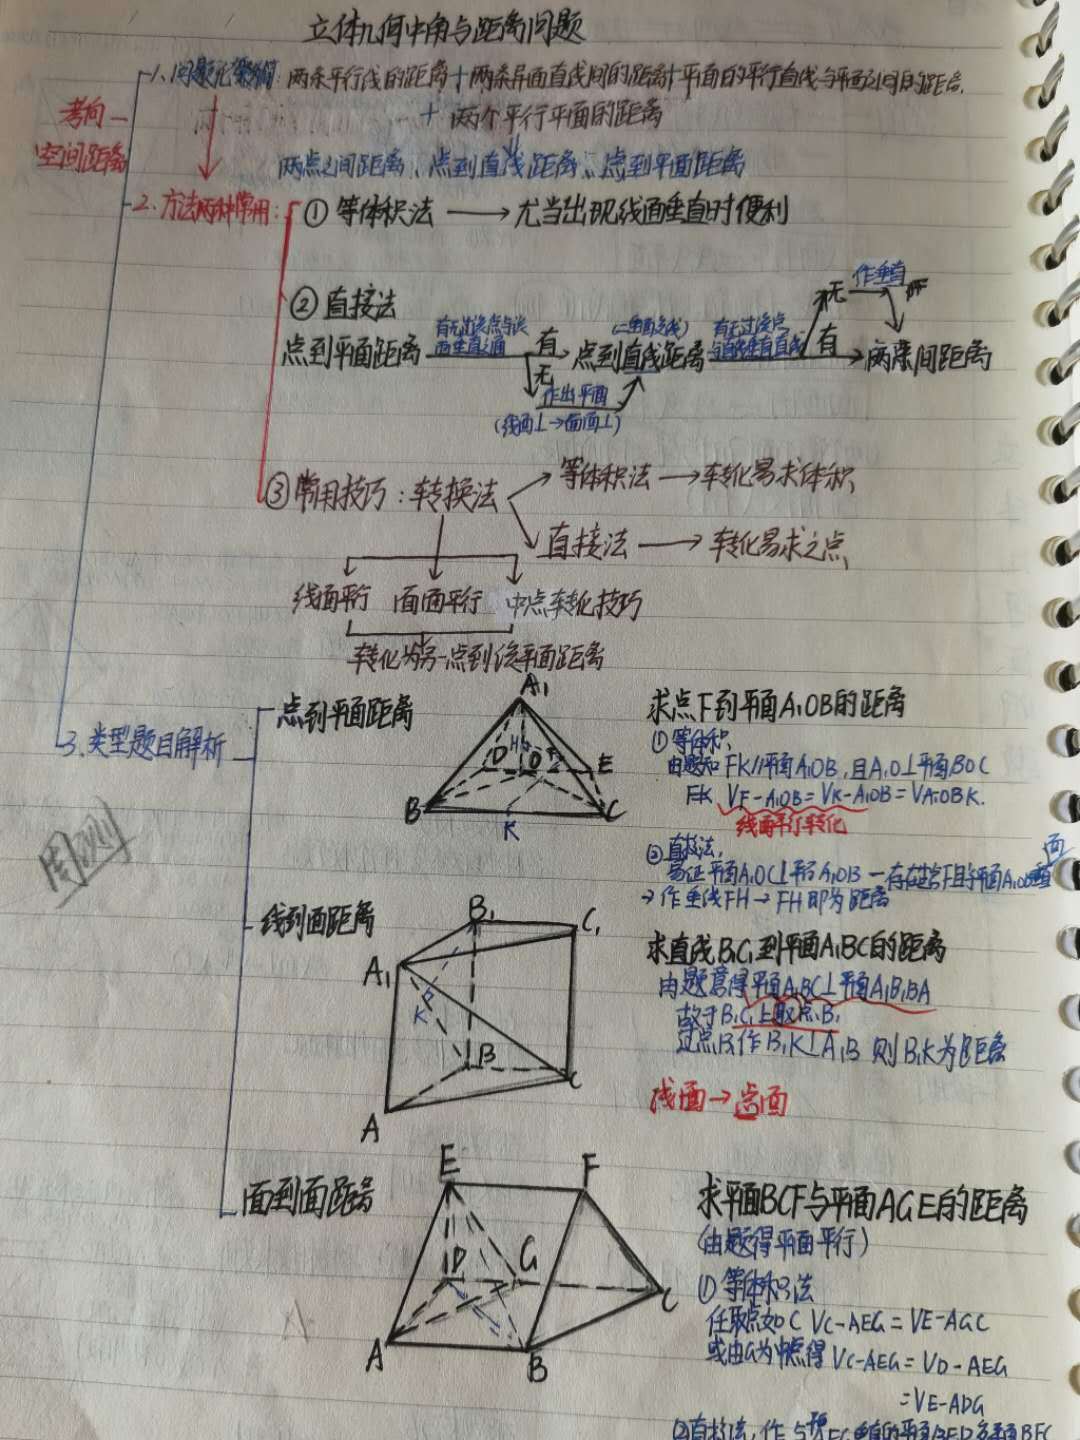 立体几何中角与距离问题
考向一
空间距离
1、问题化 : 两条平行线的距离+两条异面直线间的距离+平面的平行直线与平面之间的距离.
+ 两个平行平面的距离
两点之间距离、点到直线距离、点到平面距离
2、方法两种常用:
① 等体积法 → 尤当出现线面垂直时便利
② 直接法
点到平面距离 有无过该点与该面垂直之面 有 点到直线距离 (二垂面交线) 有无过该点与直线垂直直线 有 两点间距离
无 作垂直
无 作出平面
(线面⊥→面面⊥)
③ 常用技巧: 转换法
等体积法 → 转化易求体积
直接法 → 转化易求之点
线面平行 面面平行 中点转化技巧
转化为另一点到该平面距离
3、类型题目解析
点到平面距离
A₁ D H O F E B K C
求点F到平面A₁OB的距离
① 等体积
由题知 FK//平面A₁OB, 且A₁O⊥平面BOC
FK VF-A₁OB=VK-A₁OB=VA₁OBK.
线面平行转化
② 直接法,
易证平面A₁OC⊥平面A₁OB 一存在过点F且与平面A₁OB垂直面
→ 作垂线FH → FH即为距离
周测
线到面距离
B₁ C₁ A₁ K B C A
求直线B₁C₁到平面A₁BC的距离
由题意得平面A₁BC⊥平面A₁B₁BA
故于B₁C₁上取点B₁
过点B₁作B₁K⊥A₁B 则B₁K为距离
线面→点面
面到面距离
E F D G C A B
求平面BCF与平面AGE的距离
(由题得平面平行)
① 等体积法
任取点如C VC-AEG=VE-AGC
或由G为中点得VC-AEG=VD-AEG
=VE-ADG
②直接法,作与